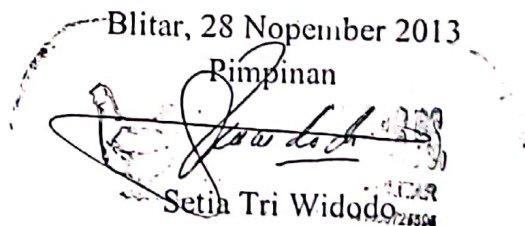 Blitar, 28 Nopember 2013
Pimpinan
Setia Tri Widodo